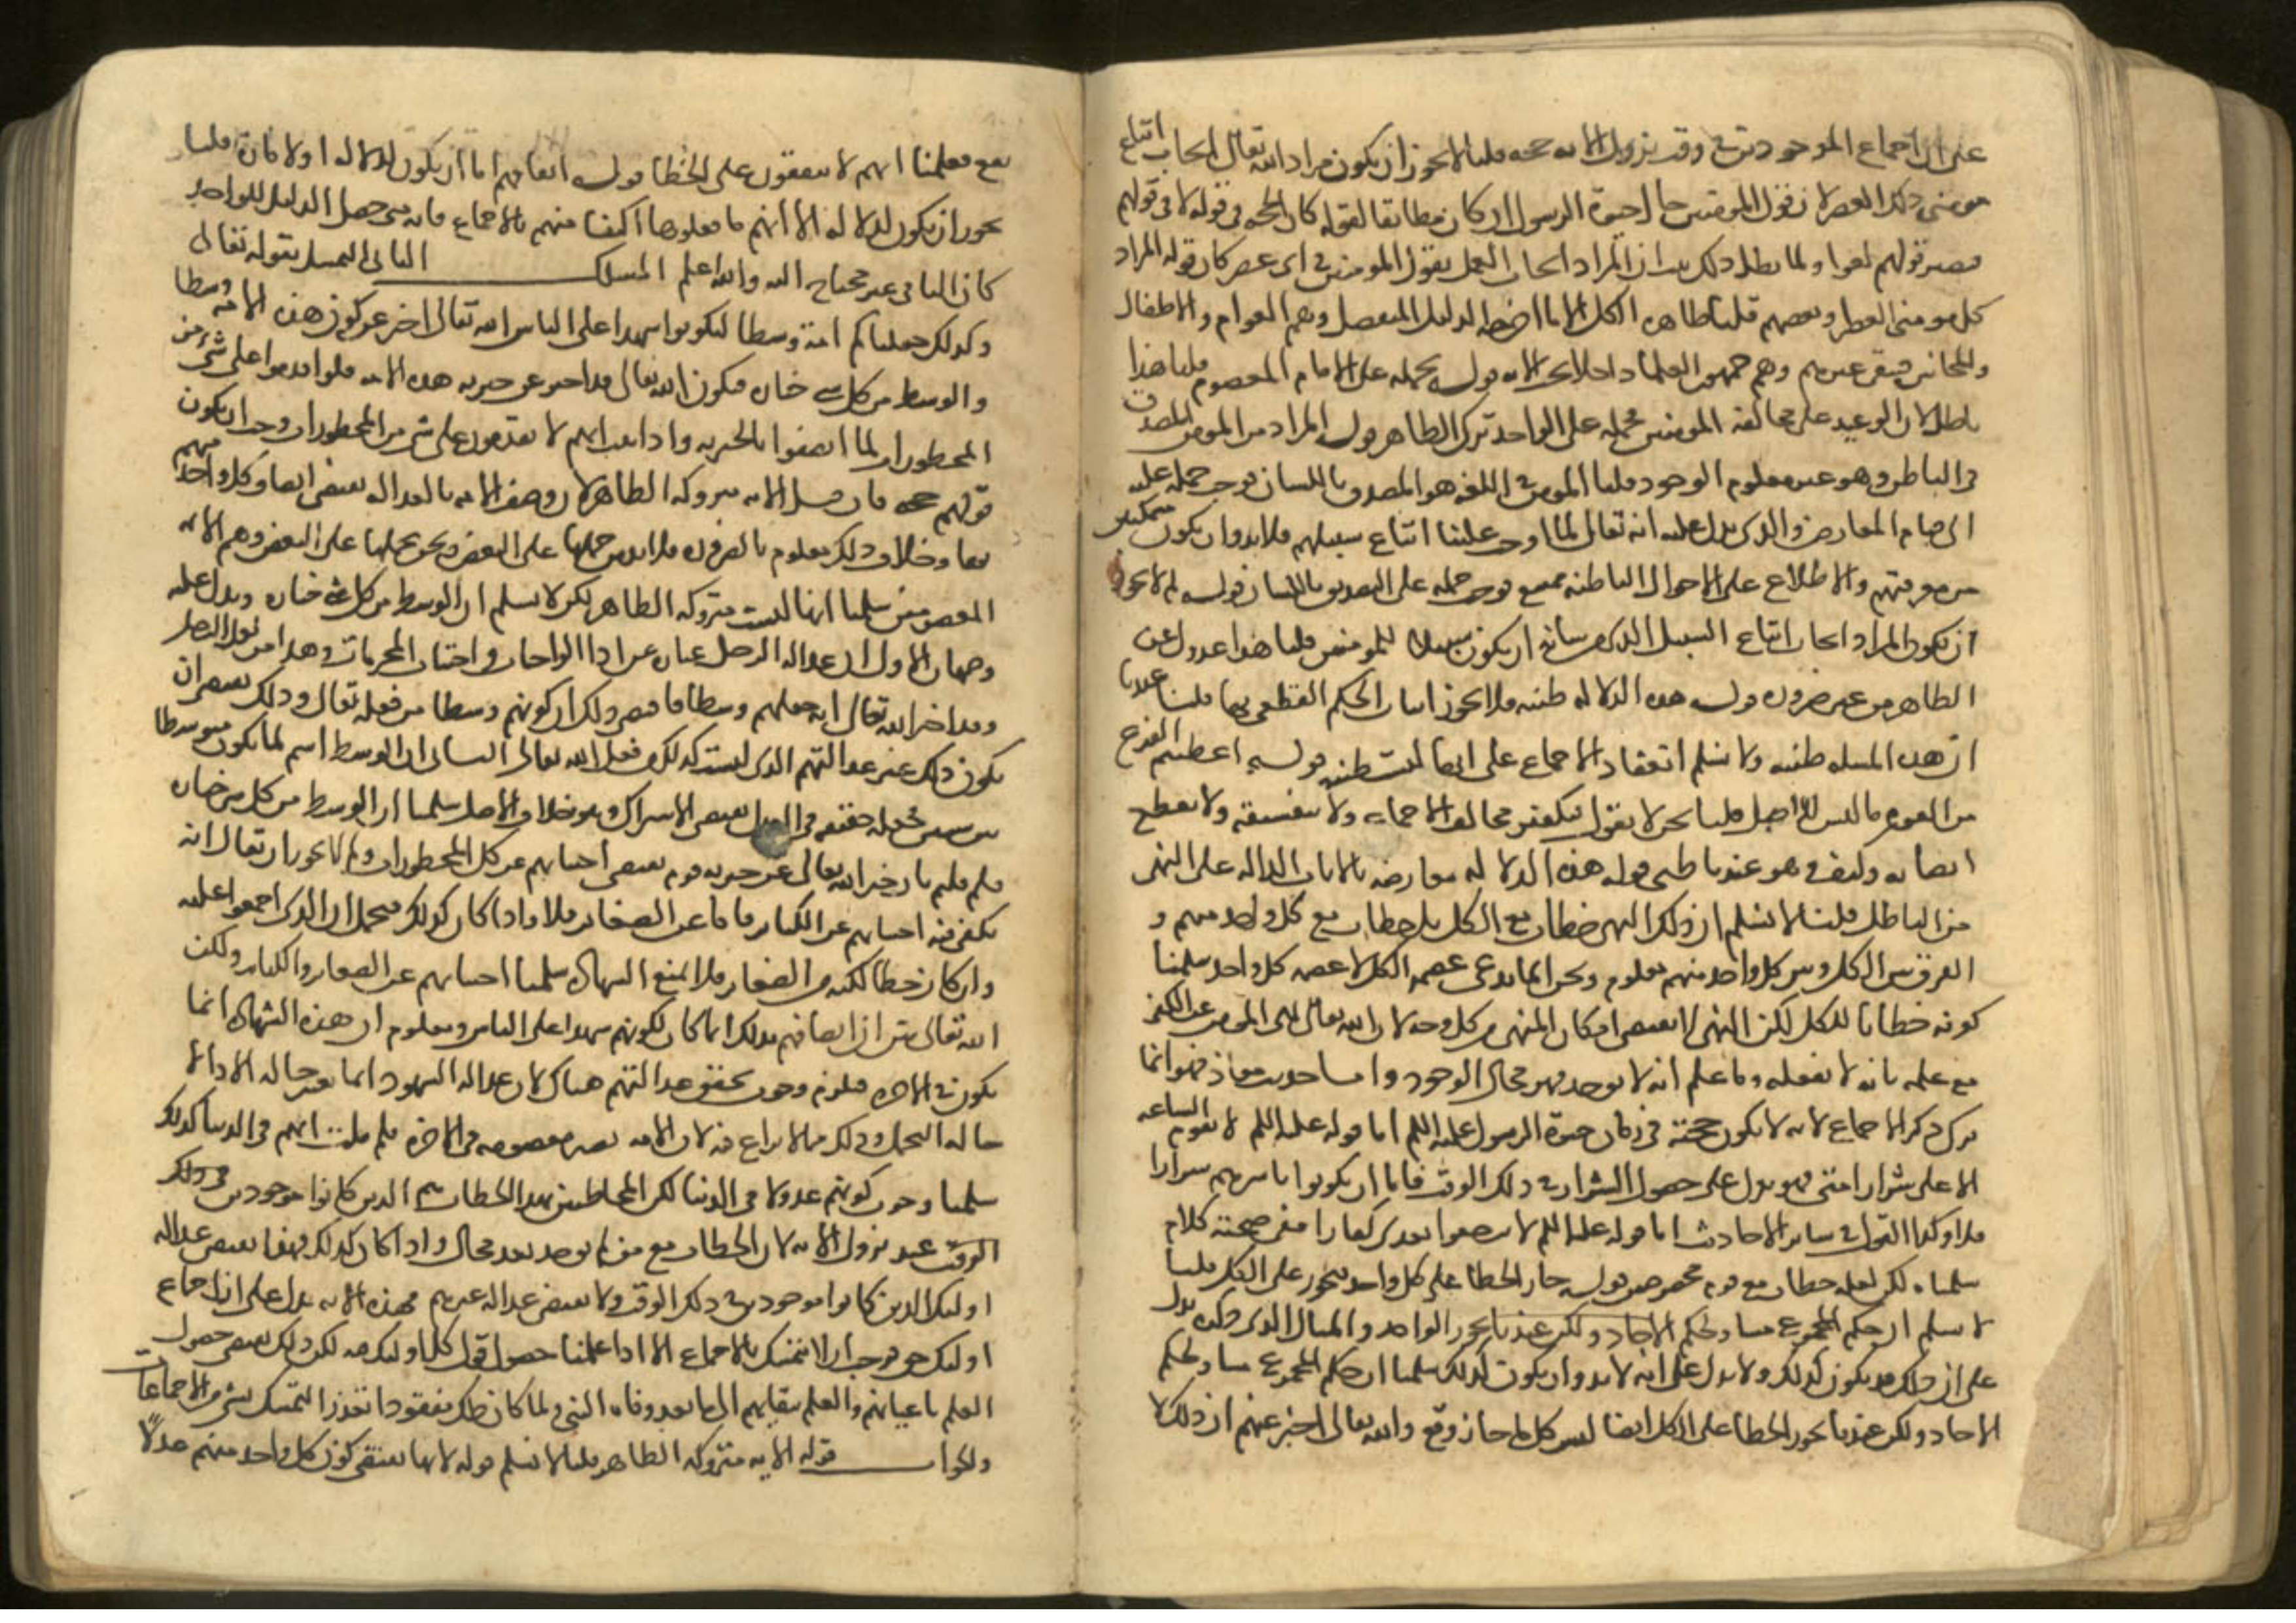 على ان اجماع الموجودين في وقت نزول الاية حجة قلنا لا يجوز ان يكون مراد الله تعالى ايجاب اتباع
مومني ذلك العصر لان قول المومنين حال حيوة الرسول ان كان مطابقا لقوله كان الحجة في قوله لا في قولهم
فيصير قولهم لغوا ولما بطل ذلك ثبت ان المراد ايجاب العمل بقول المومنين في اي عصر كان قوله المراد
كل مومني العصر او بعضهم قلنا ظاهره الكل الا ما اخرجه الدليل المنفصل وهم العوام والاطفال
والمجانين فبقي غيرهم وهم جمهور العلما داخلا تحت الاية قوله نحمله على الامام المعصوم قلنا هذا
باطل لان الوعيد على مخالفة المومنين فحمله على الواحد ترك الظاهر قوله المراد من المومن المصدق
في الباطن وهو غير معلوم الوجود قلنا المومن في اللغة هو المصدق باللسان فوجب حمله عليه
الى قيام المعارض والذي يدل عليه انه تعالى لما اوجب علينا اتباع سبيلهم فلا بد وان يكون متمكنين
من معرفتهم والاطلاع على الاحوال الباطنة ممتنع فوجب حمله على التصديق باللسان قوله لم لا يجوز
ان يكون المراد ايجاب اتباع السبيل الذي من شانه ان يكون سبيلا للمومنين قلنا هذا عدول عن
الظاهر من غير ضرورة قوله هذه الدلالة ظنية فلا يجوز اثبات الحكم القطعي بها قلنا عندنا
ان هذه المسلة ظنية ولا نسلم انعقاد الاجماع على انها ليست ظنية قوله اعطيتم الفرع
من القوة ما ليس للاصل قلنا نحن لا نقول بتكفير مخالف الاجماع ولا بتفسيقه ولا نقطع
ايضا به وكيف وهو عندنا ظني قوله هذه الدلالة معارضة بالايات الدالة على النهي
عن الباطل قلنا لا نسلم ان ذلك النهي خطاب مع الكل بل خطاب مع كل واحد منهم و
الفرق بين الكل وبين كل واحد منهم معلوم ونحن انما ندعي عصمة الكل لا عصمة كل واحد سلمنا
كونه خطابا للكل لكن النهي لا يقتضي امكان المنهي من كل وجه لان الله تعالى نهى المومن عن الكفر
مع علمه بانه لا يفعله وما علم انه لا يوجد فهو محال الوجود واما حديث معاذ فهو انما
ترك ذكر الاجماع لانه لا يكون حجة في زمان حيوة الرسول عليه السلم اما قوله عليه السلم لا تقوم الساعة
الا على شرار امتي فهو يدل على حصول الشرار في ذلك الوقت فاما ان يكونوا باسرهم شرارا
فلا وكذا القول في سائر الاحاديث اما قوله عليه السلم لا ترجعوا بعدي كفارا ففي صحته كلام
سلمناه لكن لعله خطاب مع قوم مخصوصين قوله جاز الخطا على كل واحد فيجوز على الكل قلنا
لا نسلم ان حكم المجموع مساو لحكم الاحاد ولكن عندنا يجوز الواحد والمثال الذي ذكره يدل
على ان ذلك قد يكون كذلك ولا يدل على انه لا بد وان يكون كذلك سلمنا ان حكم المجموع مساو لحكم
الاحاد ولكن عندنا يجوز الخطا على الكل ايضا ليس كل ما جاز وقع والله تعالى اخبر عنهم ان ذلك لا
يقع فعلمنا انهم لا يتفقون على الخطا قوله اتفاقهم اما ان يكون لدلالة او لامارة قلنا
يجوز ان يكون لدلالة الا انهم ما نقلوها اكتفا منهم بالاجماع فانه متى حصل الدليل الواحد
كان الثاني غير محتاج اليه والله اعلم المسلك الثاني التمسك بقوله تعالى
وكذلك جعلناكم امة وسطا لتكونوا شهدا على الناس الله تعالى اخبر عن كون هذه الامة وسطا
والوسط من كل شي خياره فيكون الله تعالى قد اخبر عن خيرية هذه الامة فلو اقدموا على شي من
المحظورات لما اتصفوا بالخيرية واذا ثبت انهم لا يقدمون على شي من المحظورات وجب ان يكون
قولهم حجة فان قيل الاية متروكة الظاهر لان وصف الامة بالعدالة يقتضي اتصاف كل واحد منهم
بها وخلاف ذلك معلوم بالضرورة فلا بد من حملها على البعض ونحن نحملها على البعض وهم الايمة
المعصومين سلمنا انها ليست متروكة الظاهر لكن لا نسلم ان الوسط من كل شي خياره ويدل عليه
وجهان الاول ان عدالة الرجل عبارة عن ادا الواجبات واجتناب المحرمات وهذا من فعل الرجل
وقد اخبر الله تعالى انه جعلهم وسطا فاقتضى ذلك ان كونهم وسطا من فعله تعالى وذلك يقتضي ان
يكون ذلك غير عدالتهم التي ليست كذلك فعل الله تعالى الثاني ان الوسط اسم لما يكون متوسطا
بين شيين فجعله حقيقة في العدل يقتضي الاشتراك وهو خلاف الاصل سلمنا ان الوسط من كل شي خياره
فلم قلتم بان خبر الله تعالى عن خيرية قوم يقتضي اجتنابهم عن كل المحظورات ولم لا يجوز ان يقال انه
يكفي فيه اجتنابهم عن الكبائر فاما عن الصغائر فلا واذا كان كذلك فيحتمل ان الذي اجمعوا عليه
وان كان خطا لكنه من الصغائر فلا يمنع الشهادة سلمنا اجتنابهم عن الصغائر والكبائر ولكن
الله تعالى بين ان اتصافهم بذلك انما كان لكونهم شهدا على الناس ومعلوم ان هذه الشهادة انما
يكون في الاخرة فلزم وجوب تحقق عدالتهم هناك لان عدالة الشهود انما تعتبر حالة الادا لا
حالة التحمل وذلك مما لا نزاع فيه لان الامة تصير معصومة في الاخرة فلم قلت انهم في الدنيا كذلك
سلمنا وجوب كونهم عدولا في الدنيا لكن المخاطبين بهذا الخطاب هم الذين كانوا موجودين في ذلك
الوقت عند نزول الاية لان الخطاب مع من لم يوجد بعد محال واذا كان كذلك فهذا يقتضي عدالة
اوليك الذين كانوا موجودين في ذلك الوقت ولا يقتضي عدالة غيرهم فهذه الاية تدل على ان اجماع
اوليك حق فيجب ان لا نتمسك بالاجماع الا اذا علمنا حصول قول كل اوليك فيه لكن ذلك يقتضي حصول
العلم باعيانهم والعلم ببقايهم الى ما بعد وفاة النبي ولما كان ذلك مفقودا تعذر التمسك بشي من الاجماعات
والجواب قوله الاية متروكة الظاهر قلنا لا نسلم قوله لانها تقتضي كون كل واحد منهم عدلا